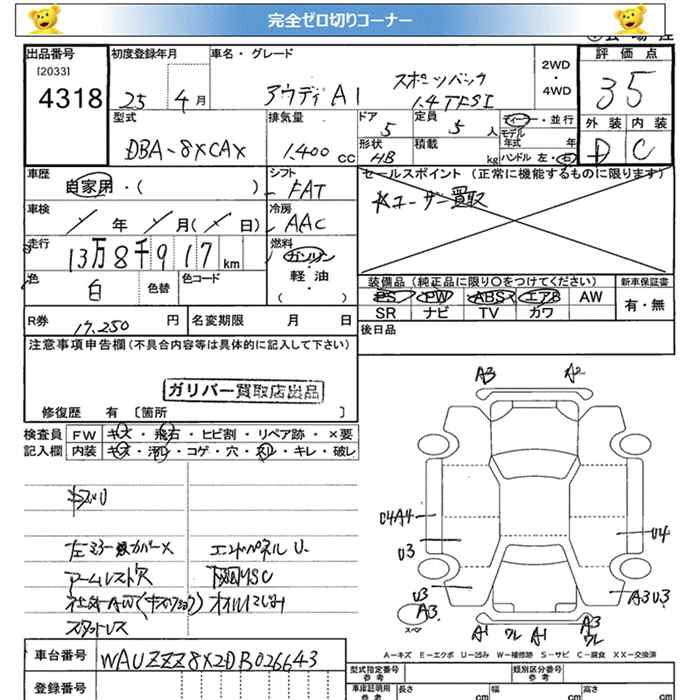 完全ゼロ切りコーナー
出品番号 初度登録年月 車名・グレード 評価点
[2033]
4318 25年 4月 アウディ A1 スポーツバック 1.4TFSI 2WD・4WD 35
型式 排気量 ドア 定員 ディーラー・並行 外装 内装
DBA-8XCAX 1.400cc 5 5人 モデル年式 年 D C
形状 積載 ハンドル 左・右
HB kg
車歴 シフト セールスポイント (正常に機能するものに限ります)
自家用・( ) FAT ユーザー買取
車検 冷房
年 月( 日) AAC
走行 燃料
13万8千917km ガソリン・軽油・( )
色 色替 色コード 装備品 (純正品に限り〇をつけてください) 新車保証書
白 PS PW ABS エアB AW 有・無
SR ナビ TV カワ
R券 17,250円 名変期限 月 日 後日品
注意事項申告欄(不具合内容等は具体的に記入して下さい)
ガリバー買取店出品
修復歴 有 〔箇所 〕
検査員 FW キズ・飛石・ヒビ割・リペア跡・×要
記入欄 内装 キズ・汚レ・コゲ・穴・スレ・キレ・破レ
キズU
左ミラー カバー× エンドパネルU
アームレスト穴
社外AW オイルにじみ
スタットレス
A3 A2
U4A4 U4
U3
U3 A3 A3U3
スペア
A1 ワレ A1 A3 ワレ
A-キズ E-エクボ U-凹み W-補修跡 S-サビ C-腐食 XX-交換済
車台番号 WAUZZZ8X2DB026643
登録番号
型式指定番号 参考 類別区分番号 参考
車庫証明用 参考 長さ cm 幅 cm 高さ cm